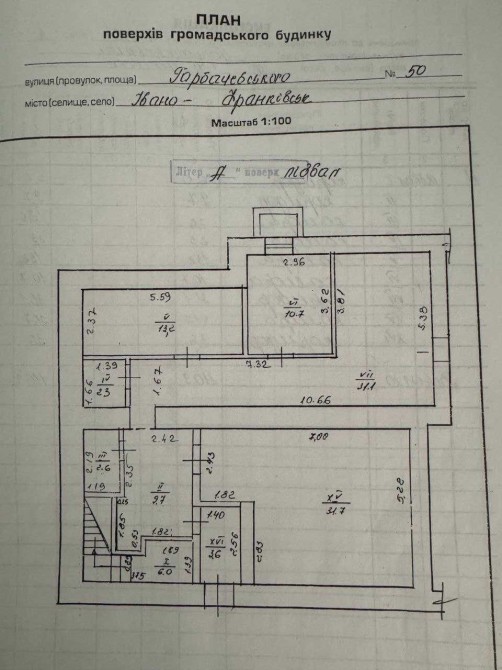 ПЛАН
поверхів громадського будинку
вулиця (провулок, площа) Горбачевського № 50
місто (селище, село) Івано - Франківськ
Масштаб 1:100
Літер „А“ поверх підвал
2.96
5.59
2.37
V
13,2
VI
10.7
3,62
3.81
5.38
7.32
1.39
1.66
IV
2.3
1.67
VII
31.1
10.66
2.42
7,00
2.19
III
2.6
2.35
2.43
1.19
II
9.7
1.82
XV
31.7
1.85
0.53
1.82
1.40
XVI
3.6
2.56
2.83
1.69
I
6.0
1.33